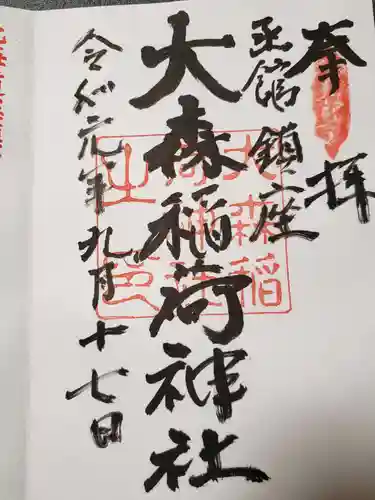 奉拝
函館鎮座
大森稲荷神社
令和元年九月十七日
大森稲
荷神社
之邑